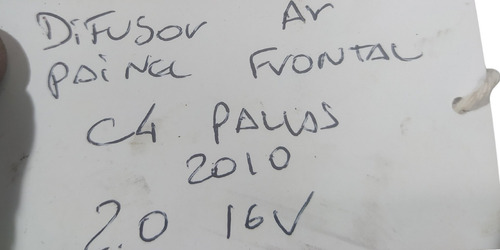 DiFUSOR AR
PAiNEL FRONTAL
C4 PALLAS
2010
2.0 16V